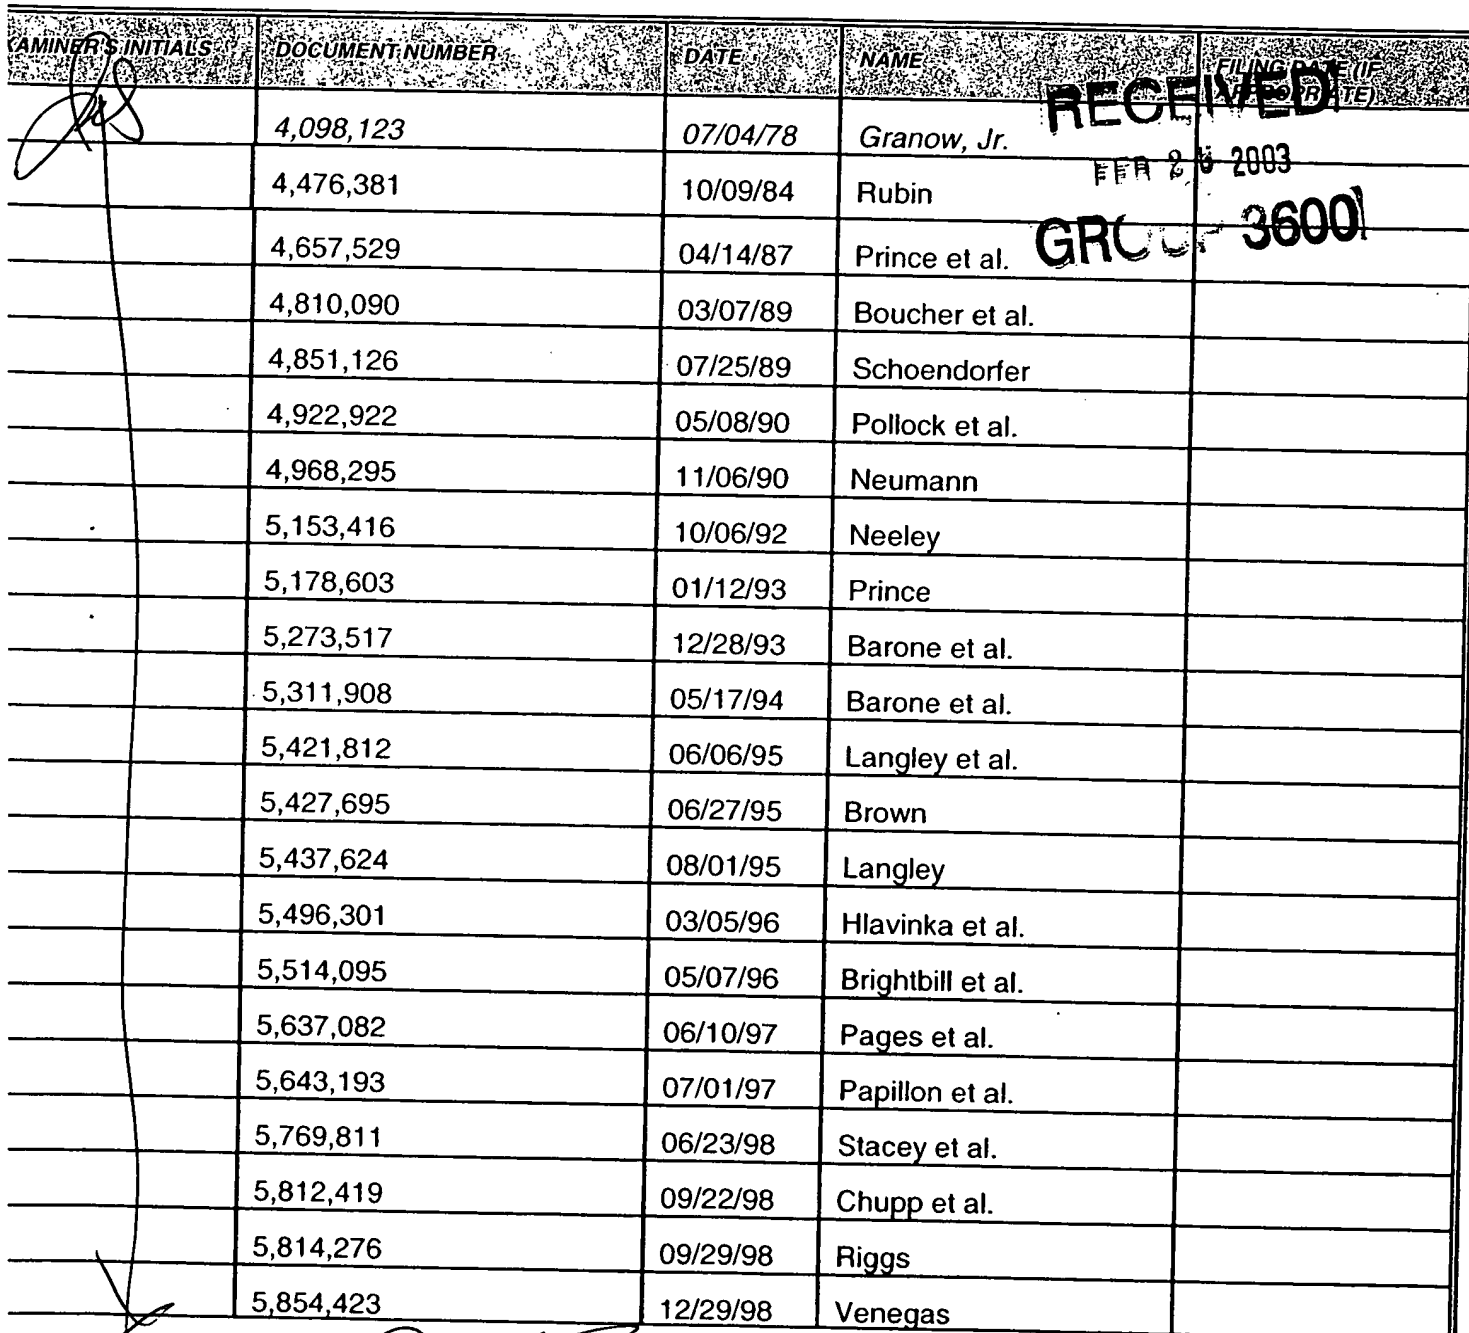 XAMINER'S INITIALS DOCUMENT NUMBER DATE NAME FILING DATE (IF
APPROPRIATE)
RECEIVED
4,098,123 07/04/78 Granow, Jr.
2003
4,476,381 10/09/84 Rubin
GROUP 3600
4,657,529 04/14/87 Prince et al.
4,810,090 03/07/89 Boucher et al.
4,851,126 07/25/89 Schoendorfer
4,922,922 05/08/90 Pollock et al.
4,968,295 11/06/90 Neumann
5,153,416 10/06/92 Neeley
5,178,603 01/12/93 Prince
5,273,517 12/28/93 Barone et al.
5,311,908 05/17/94 Barone et al.
5,421,812 06/06/95 Langley et al.
5,427,695 06/27/95 Brown
5,437,624 08/01/95 Langley
5,496,301 03/05/96 Hlavinka et al.
5,514,095 05/07/96 Brightbill et al.
5,637,082 06/10/97 Pages et al.
5,643,193 07/01/97 Papillon et al.
5,769,811 06/23/98 Stacey et al.
5,812,419 09/22/98 Chupp et al.
5,814,276 09/29/98 Riggs
5,854,423 12/29/98 Venegas